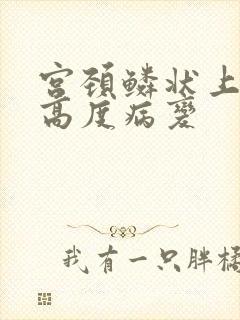 宫颈鳞状上
高度病变
我有一只胖橘